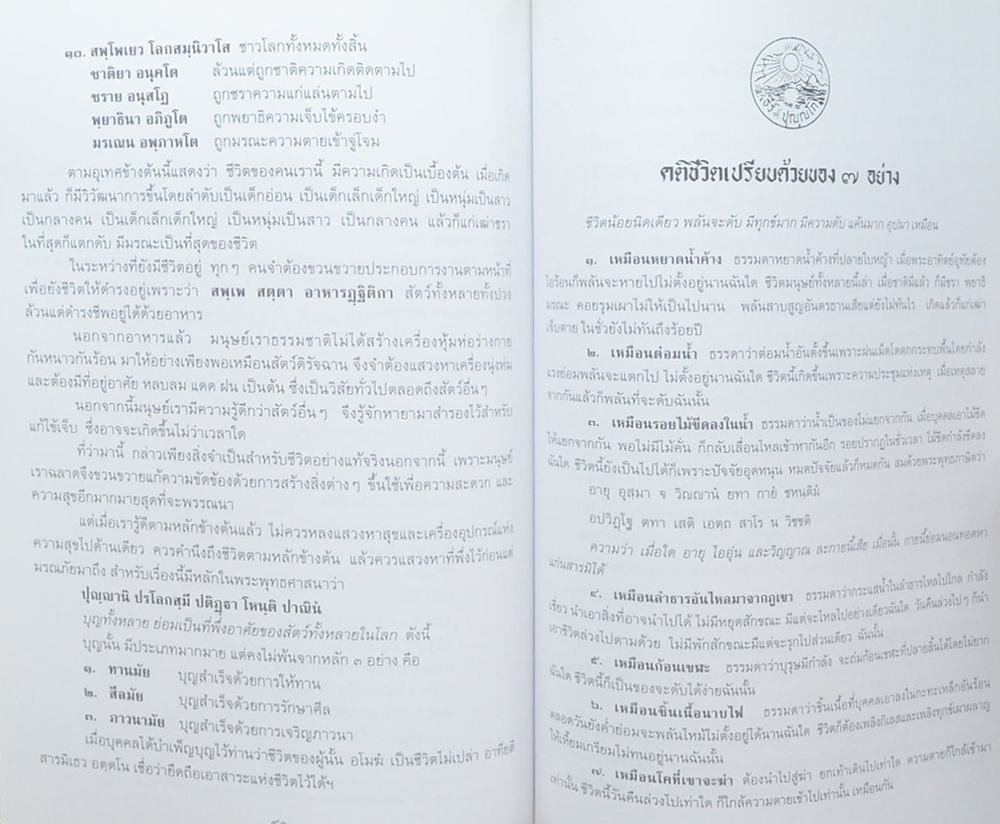 ๑๐. สพฺโพเยว โลกสมฺนิวาโส ชาวโลกทั้งหมดทั้งสิ้น
ชาติยา อนุคโต ล้วนแต่ถูกชาติความเกิดติดตามไป
ชราย อนุสโฏ ถูกชราความแก่แล่นตามไป
พฺยาธินา อภิภูโต ถูกพยาธิความเจ็บไข้ครอบงำ
มรเณน อพฺภาหโต ถูกมรณะความตายเข้าจู่โจม
ตามอุเทศข้างต้นนี้แสดงว่า ชีวิตของคนเรานี้ มีความเกิดเป็นเบื้องต้น เมื่อเกิด
มาแล้ว ก็มีวิวัฒนาการขึ้นโดยลำดับเป็นเด็กอ่อน เป็นเด็กเล็กเด็กใหญ่ เป็นหนุ่มเป็นสาว
เป็นกลางคน เป็นเด็กเล็กเด็กใหญ่ เป็นหนุ่มเป็นสาว เป็นกลางคน แล้วก็แก่เฒ่าชรา
ในที่สุดก็แตกดับ มีมรณะเป็นที่สุดของชีวิต
ในระหว่างที่ยังมีชีวิตอยู่ ทุกๆ คนจำต้องขวนขวายประกอบการงานตามหน้าที่
เพื่อยังชีวิตให้ดำรงอยู่เพราะว่า สพฺเพ สตฺตา อาหารฏฺฐิติกา สัตว์ทั้งหลายทั้งปวง
ล้วนแต่ดำรงชีพอยู่ได้ด้วยอาหาร
นอกจากอาหารแล้ว มนุษย์เราธรรมชาติไม่ได้สร้างเครื่องหุ้มห่อร่างกาย
กันหนาวกันร้อน มาให้อย่างเพียงพอเหมือนสัตว์ดิรัจฉาน จึงจำต้องแสวงหาเครื่องนุ่งห่ม
และต้องมีที่อยู่อาศัย หลบลม แดด ฝน เป็นต้น ซึ่งเป็นวิสัยทั่วไปตลอดถึงสัตว์อื่นๆ
นอกจากนี้มนุษย์เรามีความรู้ดีกว่าสัตว์อื่นๆ จึงรู้จักหายามาสำรองไว้สำหรับ
แก้ไข้เจ็บ ซึ่งอาจจะเกิดขึ้นไม่ว่าเวลาใด
ที่ว่ามานี้ กล่าวเพียงสิ่งจำเป็นสำหรับชีวิตอย่างแท้จริงนอกจากนี้ เพราะมนุษย์
เราฉลาดจึงขวนขวายแก้ความขัดข้องด้วยการสร้างสิ่งต่างๆ ขึ้นใช้เพื่อความสะดวก และ
ความสุขอีกมากมายสุดที่จะพรรณนา
แต่เมื่อเรารู้ดีตามหลักข้างต้นแล้ว ไม่ควรหลงแสวงหาสุขและเครื่องอุปกรณ์แห่ง
ความสุขไปด้านเดียว ควรคำนึงถึงชีวิตตามหลักข้างต้น แล้วควรแสวงหาที่พึ่งไว้ก่อนแต่
มรณภัยมาถึง สำหรับเรื่องนี้มีหลักในพระพุทธศาสนาว่า
ปุญฺญานิ ปรโลกสฺมึ ปติฏฺฐา โหนฺติ ปาณินํ
บุญทั้งหลาย ย่อมเป็นที่พึ่งอาศัยของสัตว์ทั้งหลายในโลก ดังนี้
บุญนั้น มีประเภทมากมาย แต่คงไม่พ้นจากหลัก ๓ อย่าง คือ
๑. ทานมัย บุญสำเร็จด้วยการให้ทาน
๒. สีลมัย บุญสำเร็จด้วยการรักษาศีล
๓. ภาวนามัย บุญสำเร็จด้วยการเจริญภาวนา
เมื่อบุคคลได้บำเพ็ญบุญไว้ท่านว่าชีวิตของผู้นั้น อโมฆํ เป็นชีวิตไม่เปล่า อาทียติ
สารมิเธว อตฺตโน เชื่อว่ายึดถือเอาสาระแห่งชีวิตไว้ได้ฯ
คติชีวิตเปรียบด้วยของ ๗ อย่าง
ชีวิตน้อยนิดเดียว พลันจะดับ มีทุกข์มาก มีความคับ แค้นมาก อุปมา เหมือน
๑. เหมือนหยาดน้ำค้าง ธรรมดาหยาดน้ำค้างที่ปลายใบหญ้า เมื่อพระอาทิตย์อุทัยต้อง
ไอร้อนก็พลันจะหายไปไม่ตั้งอยู่นานฉันใด ชีวิตมนุษย์ทั้งหลายนี้เล่า เมื่อชาติมีแล้ว ก็มีชรา พยาธิ
มรณะ คอยรุมเผาไม่ให้เป็นไปนาน พลันสาบสูญอันตรธานเสียแต่ยังไม่ทันไร เกิดแล้วก็แก่เฒ่า
เจ็บตาย ในชั่วยังไม่ทันถึงร้อยปี
๒. เหมือนต่อมน้ำ ธรรมดาว่าต่อมน้ำอันตั้งขึ้นเพราะฝนเม็ดโตตกกระทบพื้นโดยกำลัง
แรงย่อมพลันจะแตกไป ไม่ตั้งอยู่นานฉันใด ชีวิตนี้เกิดขึ้นเพราะความประชุมแห่งเหตุ เมื่อเหตุสลาย
จากกันแล้วก็พลันที่จะดับฉันนั้น
๓. เหมือนรอยไม้ขีดลงในน้ำ ธรรมดาว่าน้ำเป็นของไม่แยกจากกัน เมื่อบุคคลเอาไม้ขีด
ให้แยกจากกัน พอไม่มีไม้คั่น ก็กลับเลื่อนไหลเข้าหากันอีก รอยปรากฏในชั่วเวลา ไม้ขีดกำลังขีดลง
ฉันใด ชีวิตนี้ยังเป็นไปได้ก็เพราะปัจจัยอุดหนุน หมดปัจจัยแล้วก็หมดกัน สมด้วยพระพุทธภาษิตว่า
อายุ อุสฺมา จ วิญฺญาณํ ยทา กายํ ชหนฺติมํ
อปวิฏฺโฐ ตทา เสติ เอตฺถ สาโร น วิชฺชติ
ความว่า เมื่อใด อายุ ไออุ่น และวิญญาณ ละกายนี้เสีย เมื่อนั้น กายนี้ย่อมนอนทอดหา
แก่นสารมิได้
๔. เหมือนลำธารอันไหลมาจากภูเขา ธรรมดาว่ากระแสน้ำในลำธารไหลไปไกล กำลัง
เชี่ยว นำเอาสิ่งที่อาจนำไปได้ ไม่มีหยุดสักขณะ มีแต่จะไหลไปอย่างเดียวฉันใด วันคืนล่วงไปๆ ก็นำ
เอาชีวิตล่วงไปตามด้วย ไม่มีพักสักขณะมีแต่จะรุกไปส่วนเดียว ฉันนั้น
๕. เหมือนก้อนเขฬะ ธรรมดาว่าบุรุษมีกำลัง จะถ่มก้อนเขฬะที่ปลายลิ้นได้โดยไม่ยาก
ฉันใด ชีวิตนี้ก็เป็นของจะดับได้ง่ายฉันนั้น
๖. เหมือนชิ้นเนื้อนาบไฟ ธรรมดาว่าชิ้นเนื้อที่บุคคลเอาลงในกะทะเหล็กอันร้อน
ตลอดวันยังค่ำย่อมจะพลันไหม้ไม่ตั้งอยู่ได้นานฉันใด ชีวิตก็ต้องเพลิงกิเลสและเพลิงทุกข์เผาผลาญ
ให้เหี้ยมเกรียมไม่ทนอยู่นานฉันนั้น
๗. เหมือนโคที่เขาจะฆ่า ต้องนำไปสู่ฆ่า ยกเท้าเดินไปเท่าใด ความตายก็ใกล้เข้ามา
เท่านั้น ชีวิตนี้วันคืนล่วงไปเท่าใด ก็ใกล้ความตายเข้าไปเท่านั้น เหมือนกัน